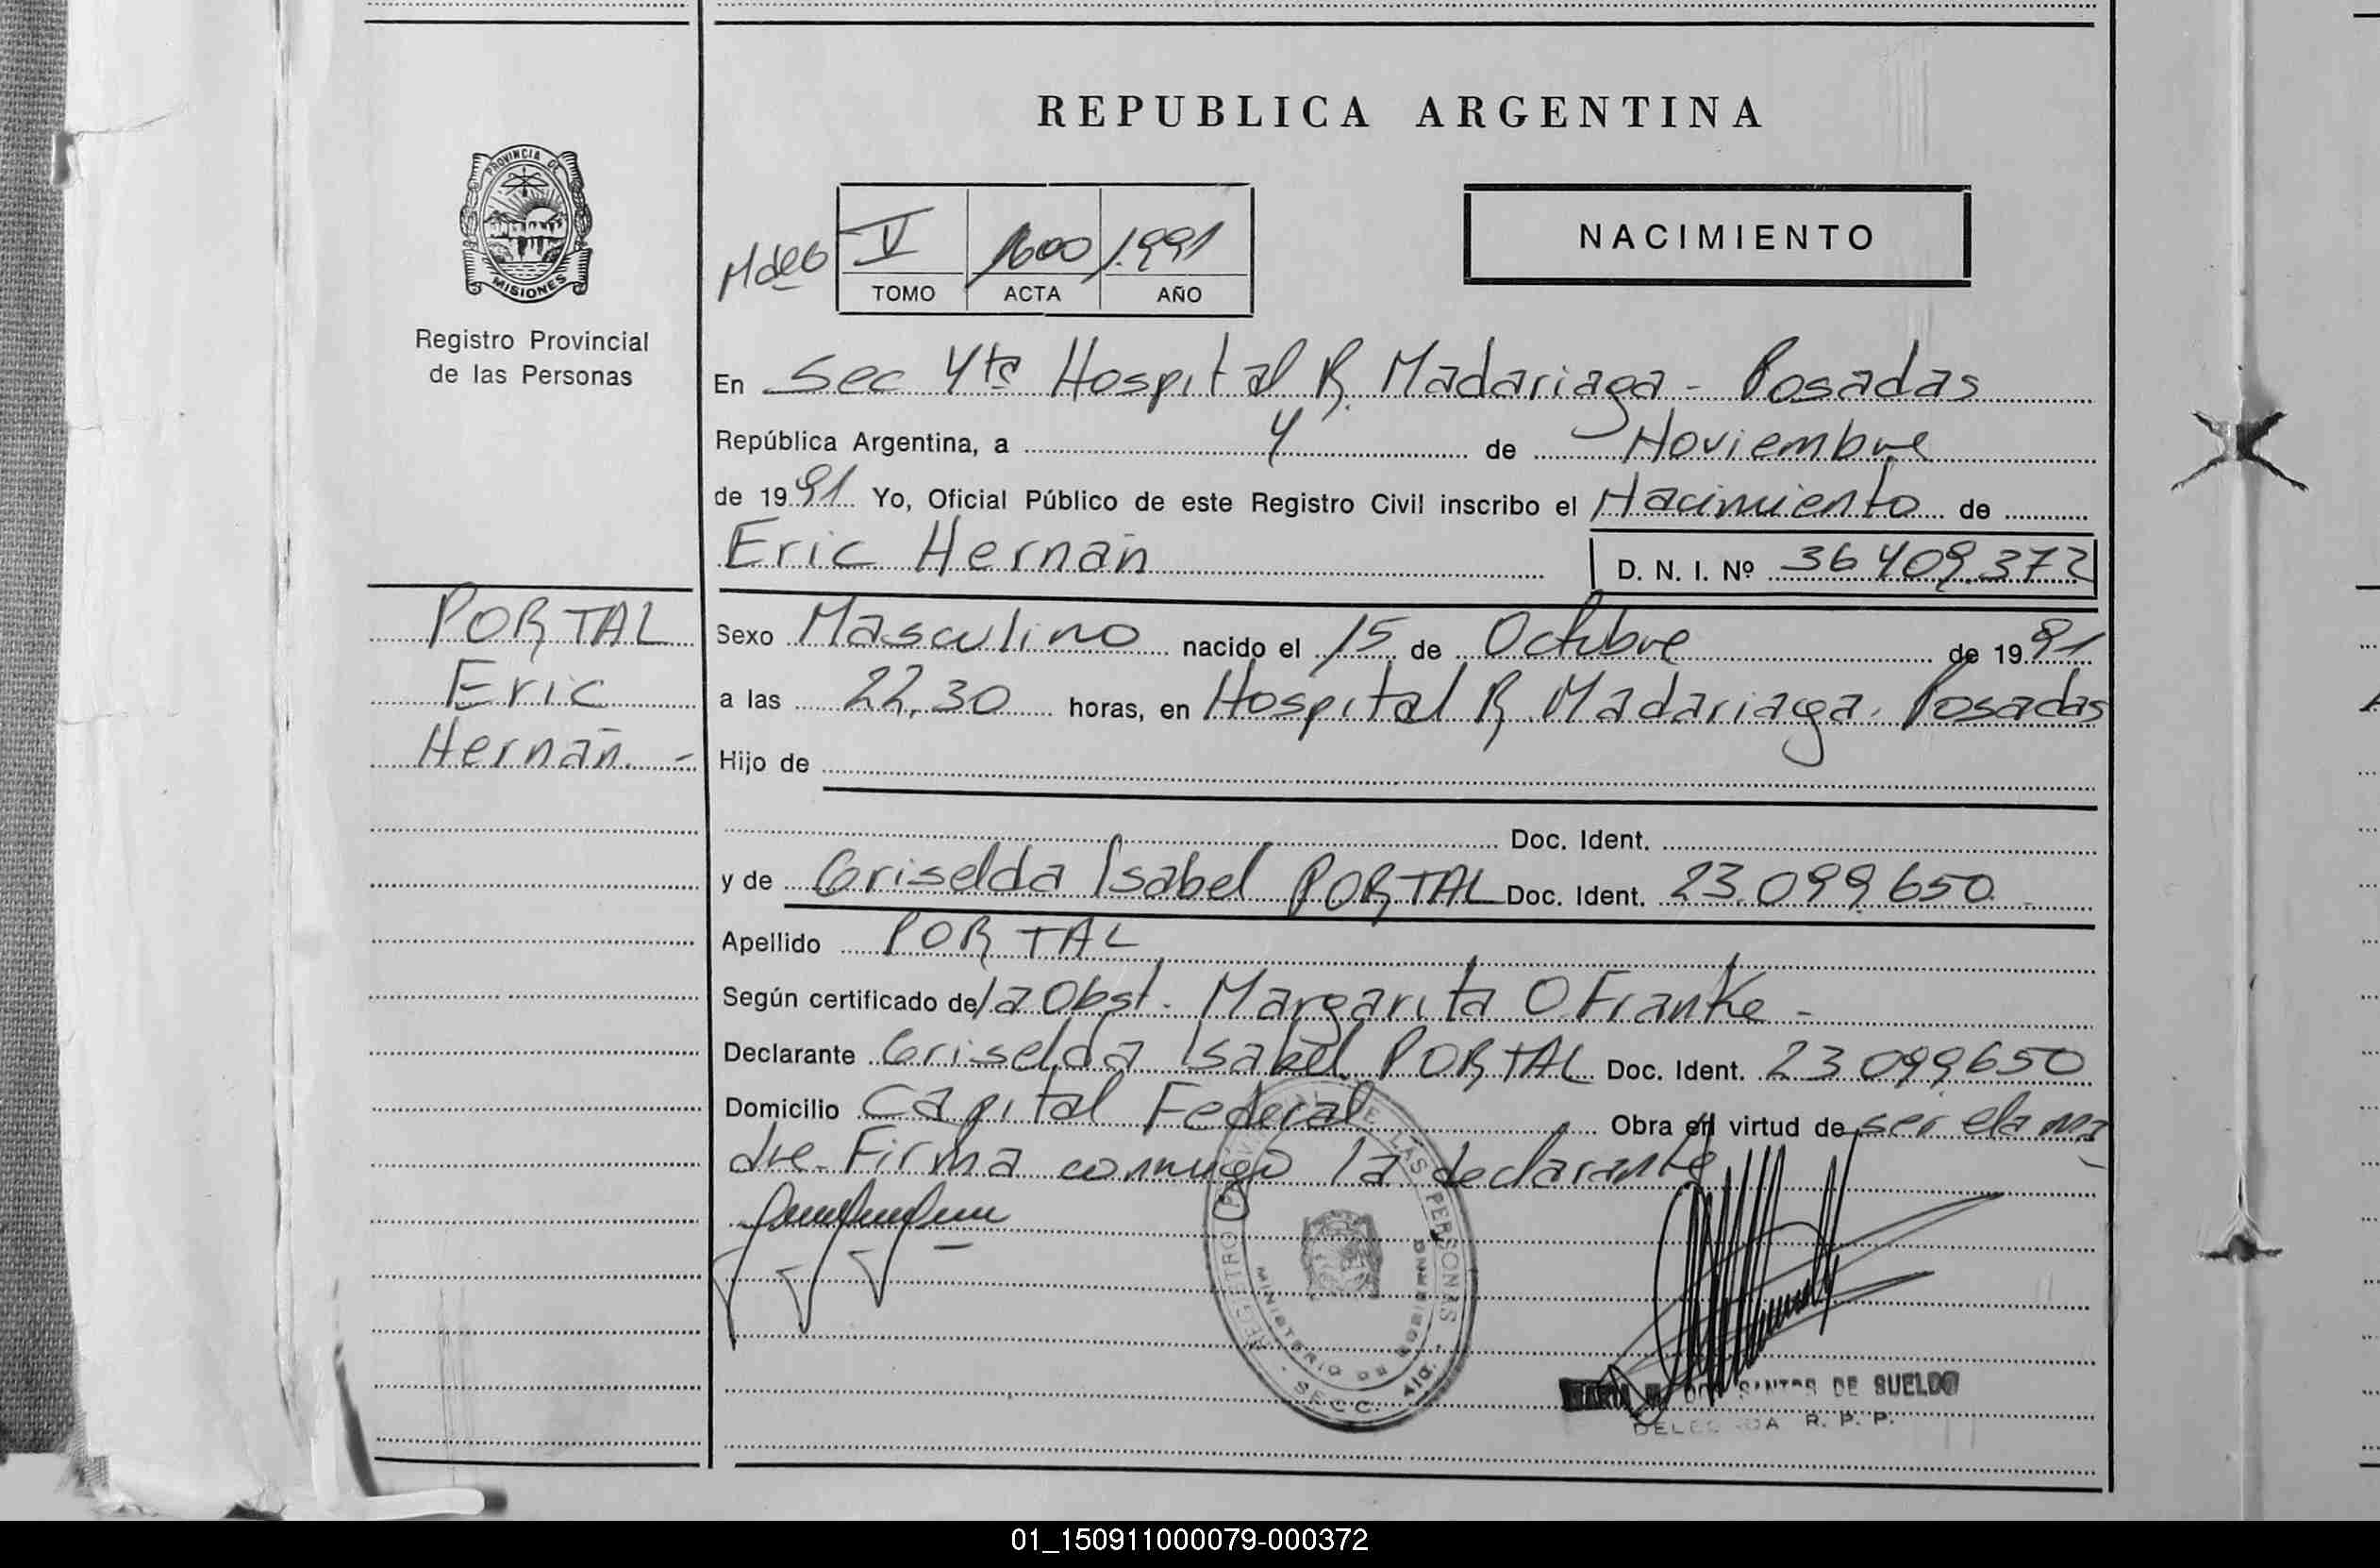 REPUBLICA ARGENTINA
PROVINCIA DE
MISIONES
Registro Provincial
de las Personas
V 1600 1.991
TOMO ACTA AÑO
NACIMIENTO
En Sec 4ta Hospital R. Madariaga - Posadas
República Argentina, a 4 de Noviembre
de 1991 Yo, Oficial Público de este Registro Civil inscribo el Nacimiento de
Eric Hernán D. N. I. Nº 36409.372
PORTAL
Eric
Hernán. -
Sexo Masculino nacido el 15 de Octubre de 1991
a las 22,30 horas, en Hospital R. Madariaga. Posadas
Hijo de
Doc. Ident.
y de Griselda Isabel PORTAL Doc. Ident. 23.099.650
Apellido PORTAL
Según certificado de la Obst. Margarita O Franke -
Declarante Griselda Isabel PORTAL Doc. Ident. 23.099650
Domicilio Capital Federal Obra en virtud de ser ela ma
dre. Firma conmigo la declarante
REGISTRO PROVINCIAL DE LAS PERSONAS
MINISTERIO DE GOBIERNO
- SECC. 4ta. -
MARIA DOS SANTOS DE SUELDO
DELEGADA R. P. P.
01_150911000079-000372